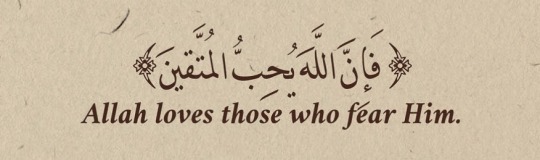 ﴿فَإِنَّ اللَّهَ يُحِبُّ الْمُتَّقِينَ﴾
Allah loves those who fear Him.